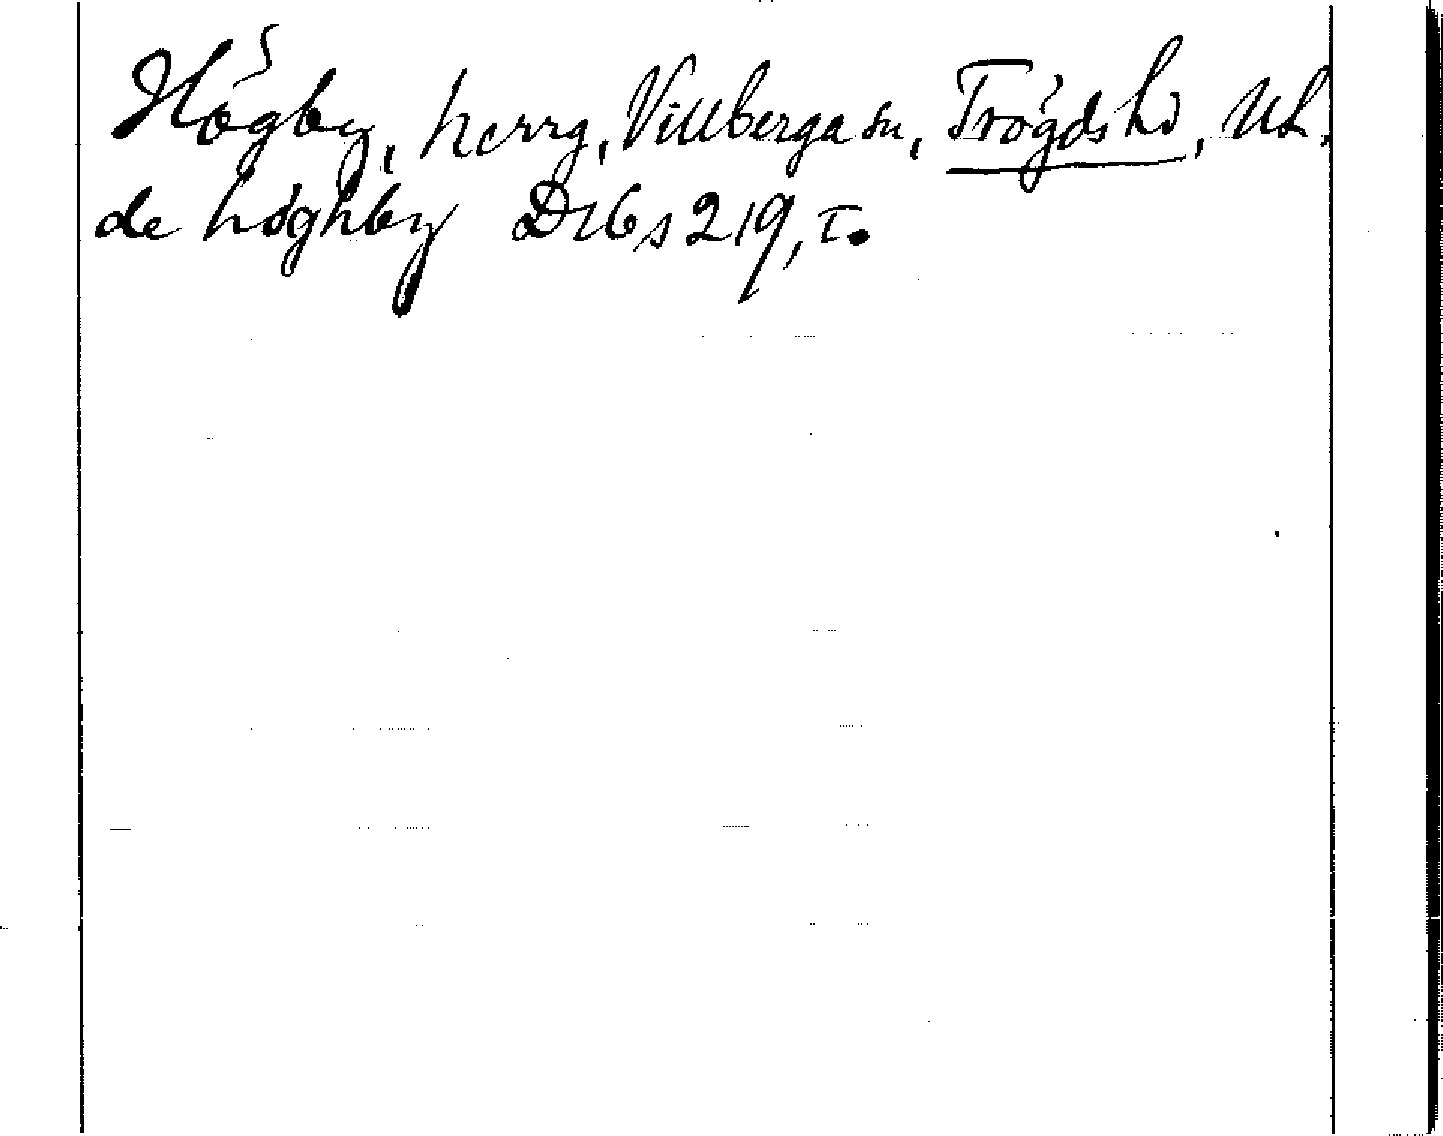 Högby, herrg, Villberga sn, Trögds hd, Ul.
de höghby D26 s 219, I.